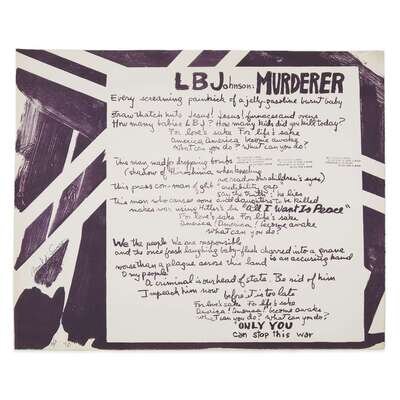 LBJohnson: MURDERER
Every screaming of a jelly-gasoline burnt baby
thatch huts Jesus! Jesus! furnaces and ovens
How many babies LBJ? How many kids did you kill today?
For love's sake For life's sake
America America become awake
What can you do? What can you do?
This man, mad for dropping bombs
(shadow of Hiroshima when kneeling
we read in his children's eyes)
This press con-man of glib credibility gap
say the truth: he lies
This man who causes sons and daughters to be killed
makes war using Hitler's lie "All I Want Is Peace"
For love's sake For life's sake
America! America! become awake
What can you do?
We the people We are responsible
and the once fresh laughing baby-flesh charred into a grave
worse than a plague across this land is an accursed hand
O my people!
A criminal is our head of state. Be rid of him
Impeach him now before it is too late
For love's sake For life's sake
America! America! become awake
What can you do? What can you do?
"ONLY YOU
can stop this war